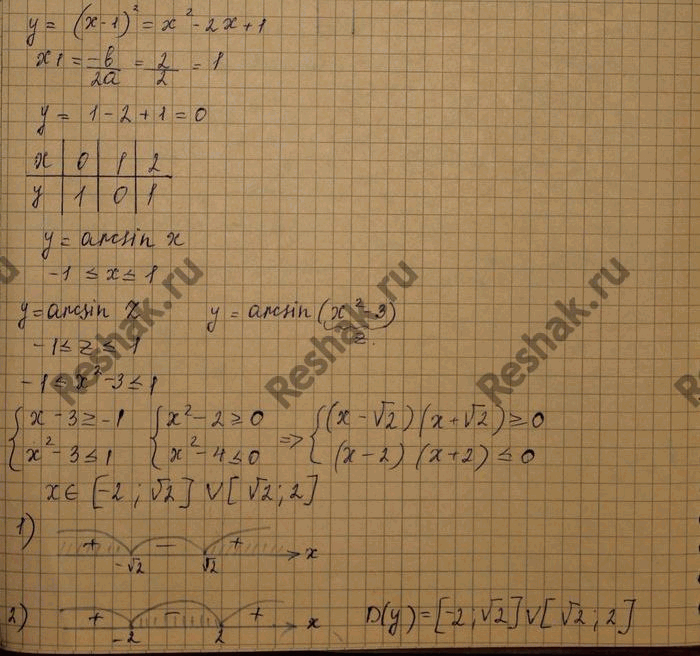 y = (x-1)² = x² - 2x + 1
x1 = -b/2a = 2/2 = 1
y = 1 - 2 + 1 = 0
x | 0 | 1 | 2
y | 1 | 0 | 1
y = arcsin x
-1 ≤ x ≤ 1
y = arcsin z y = arcsin (x² - 3)
z.
-1 ≤ z ≤ 1
-1 ≤ x² - 3 ≤ 1
{ x - 3 ≥ -1 { x² - 2 ≥ 0 => { (x - √2)(x + √2) ≥ 0
{ x² - 3 ≤ 1 { x² - 4 ≤ 0 { (x - 2)(x + 2) ≤ 0
x ∈ [-2 ; √2] ∨ [√2 ; 2]
1) + - +
-√2 √2 x
2) + - + D(y) = [-2 ; √2] ∨ [√2 ; 2]
-2 2 x
Reshak.ru
Reshak.ru
Reshak.ru